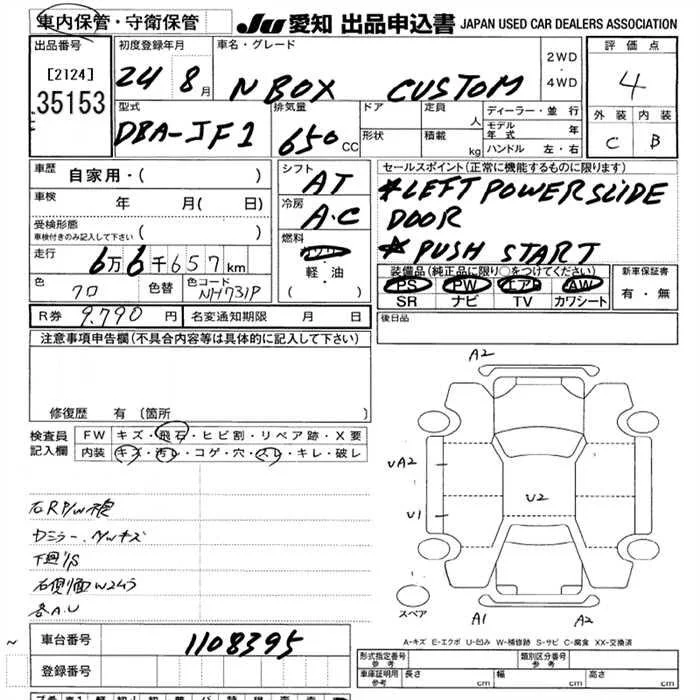 車内保管・守衛保管
JU 愛知 出品申込書 JAPAN USED CAR DEALERS ASSOCIATION
出品番号
[2124]
35153
初度登録年月
24 8月
車名・グレード
N BOX CUSTOM
2WD・4WD
評価点
4
外装 内装
C B
型式
DBA-JF1
排気量
650 CC
ドア
形状
定員 人
積載 kg
ディーラー・並行
モデル年式 年
ハンドル 左・右
車歴 自家用・( )
車検 年 月( 日)
受検形態
車検付きのみ記入して下さい ( )
走行
6万6千657km
色
クロ
色替
色コード
NH731P
シフト
AT
冷房
A.C
燃料
ガソリン
軽・油
( )
セールスポイント(正常に機能するものに限ります)
*LEFT POWER SLIDE
DOOR
*PUSH START
装備品(純正品に限り○をつけてください)
PS PW エアB AW
SR ナビ TV カワシート
新車保証書
有・無
R券 9,790円 名変通知期限 月 日
後日品
注意事項申告欄(不具合内容等は具体的に記入して下さい)
修復歴 有 (箇所 )
検査員
記入欄
FW キズ・飛石・ヒビ割・リペア跡・X要
内装 キズ・汚レ・コゲ・穴・スレ・キレ・破レ
下廻り/S
各A.U
A2
UA2
U1
U2
A1
A2
スペア
A-キズ E-エクボ U-凹み W-補修跡 S-サビ C-腐食 XX-交換済
車台番号 1108395
登録番号
形式指定番号
参考
類別区分番号
参考
車庫証明用
参考
長さ cm 幅 cm 高さ cm